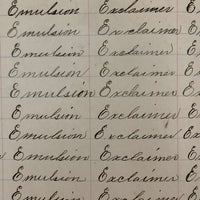 Emulsion Exclaimer
Emulsion Exclaimer
Emulsion Exclaimer
Emulsion Exclaimer
Emulsion Exclaimer
Emulsion Exclaimer
Emulsion Exclaimer
Emulsion Exclaimer
Emulsion Exclaimer
Emulsion Exclaimer